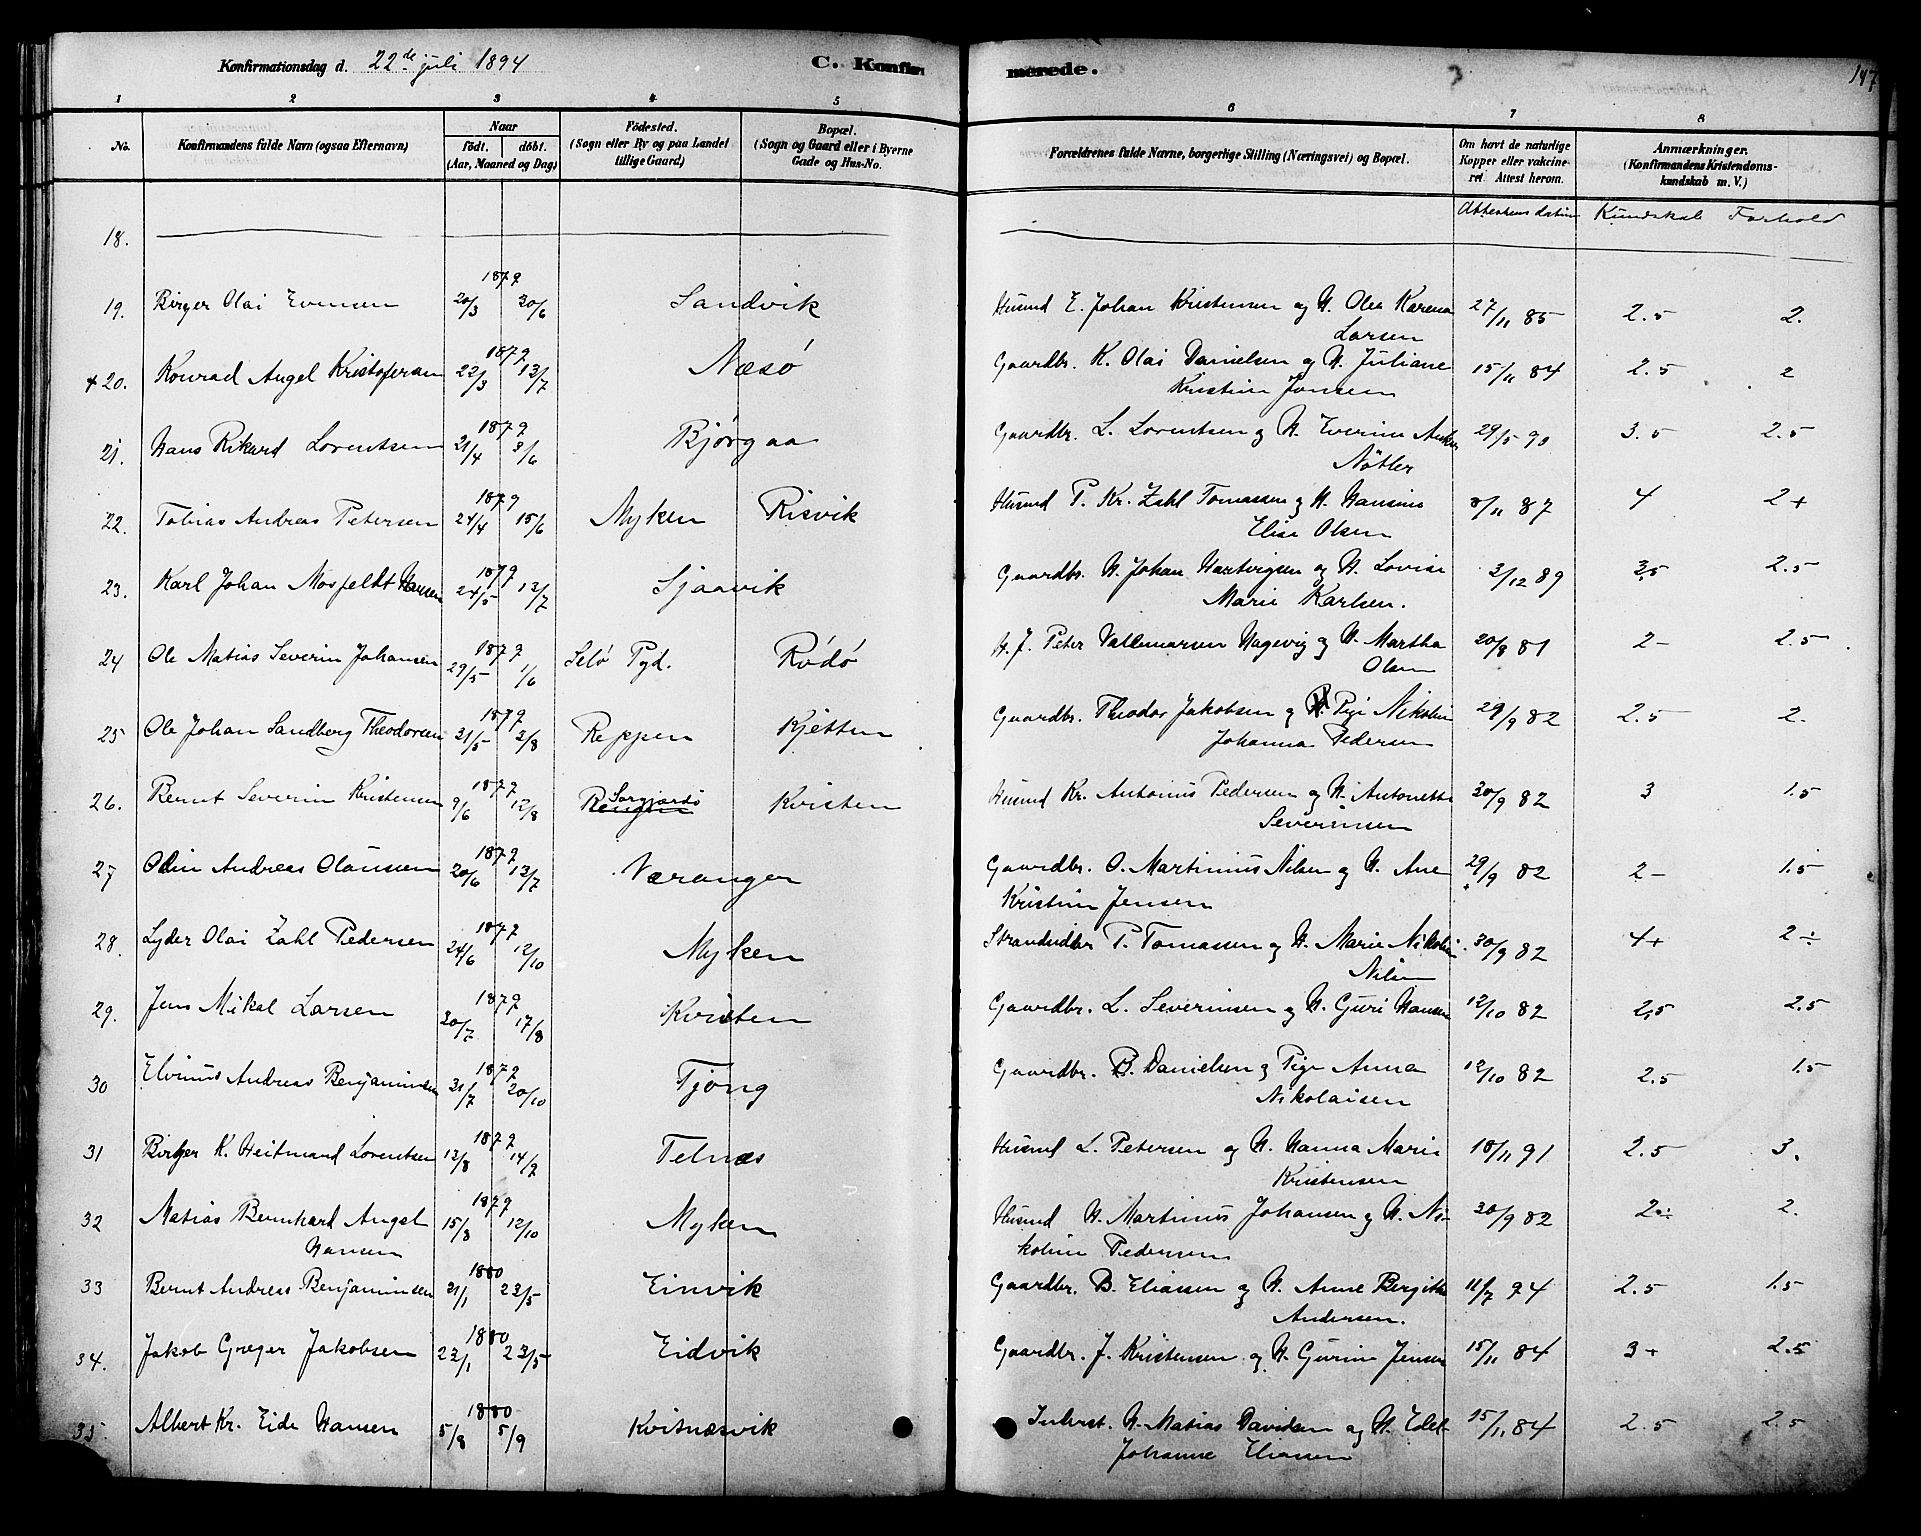 Konfirmationsdag d. 22de juli 1894 C. Konfir merede. 147
1 2 3 4 5 6 7 8
No. Konfirmandens fulde Navn (ogsaa Efternavn) Naar födt. döbt. (Aar, Maaned og Dag) Födested. (Sogn eller By og paa Landet tillige Gaard) Bopæl. (Sogn og Gaard eller i Byerne Gade og Hus-No.
Forældrenes fulde Navne, borgerlige Stilling (Næringsvei) og Bopæl. Om havt de naturlige Kopper eller vakcineret. Attest herom. Anmærkninger. (Konfirmandens Kristendomskundskab m. V.)
Attestens datum Kundskab Forhold
18.
19. Birger Olai Evensen 1879 20/3 30/6 Sandvik Husmd E. Johan Kristensen og H. Olea Karena Larsen 27/11 85 2.5 2.
+ 20. Konrad Angel Kristofersen 1879 22/3 13/7 Næsö Gaardbr. K. Olai Danielsen og H. Juliane Kristine Jonsen 15/11 84 2.5 2
21. Hans Rikard Lorentsen 1879 21/4 8/6 Bjørgaa Gaardbr. L. Lorentsen og H. Everine Nötler 29/5 90 3.5 2.5
22. Tobias Andreas Petersen 1879 24/4 15/6 Myken Risvik Husmd P. Kr. Zahl Tomassen og H. Hansine Elise Olsen 8/11 87 4 2+
23. Karl Johan Mosfeldt Hansen 1879 24/5 13/7 Sjaavik Gaardbr. H. Johan Hartvigsen og H. Lovise Marie Karlsen. 3/12 89 3.5 2.5
24 Ole Matias Severin Johansen 1879 29/5 1/6 Selö Pgd. Rödö H. J. Peter Valdemarsen Hagevig og H. Martha Olsen 20/8 81 2- 2.5
25 Ole Johan Sandberg Theodorsen 1879 31/5 3/8 Reppen Kjetten Gaardbr. Theodor Jakobsen og Pige Nikoline Johanna Pedersen 29/9 82 2.5 2.
26. Bernt Severin Kristensen 1879 9/6 12/8 Sørgjerdö Kvisten Husmd Kr. Antonius Pedersen og H. Antonette Severinsen 30/9 82 3 1.5
27 Odin Andreas Olaussen 1879 20/6 13/7 Væranger Gaardbr. O. Martinus Nilsen og H. Ane Kristine Jensen 29/9 82 2- 1.5
28. Lyder Olai Zahl Pedersen 1879 24/6 12/10 Myken Strandsidder P. Tomassen og H. Marie Nikoline Nilsen 30/9 82 4+ 2÷
29. Jens Mikal Larsen 1879 30/7 17/8 Kvisten Gaardbr. L. Severinsen og H. Guri Hansen 12/10 82 2.5 2.5
30 Elvinus Andreas Benjaminsen 1879 31/7 20/10 Tjöng Gaardbr. B. Danielsen og Pige Anna Nikolaisen 12/10 82 2.5 1.5
31 Birger K. Heitmand Lorentsen 1879 13/8 14/9 Telnæs Husmd L. Petersen og H. Hanna Marie Kristensen 18/11 91 2.5 3.
32 Matias Bernhard Angel Hansen 1879 15/8 12/10 Myken Husmd H. Martinus Johansen og H. Nikoline Pedersen 30/9 82 2÷ 2.
33 Bernt Andreas Benjaminsen 1880 21/1 23/5 Einvik Gaardbr. B. Eliassen og H. Anne Bergitte Andersen. 11/7 94 2.5 1.5
34. Jakob Greger Jakobsen 1880 22/1 23/5 Eidvik Gaardbr. J. Kristensen og H. Gurine Jensen 15/11 84 3+ 2.5
35. Albert Kr. Eide Hansen 1880 5/8 5/9 Kvitnæsvik Inderst. H. Matias Davidsen og H. Edel Johanne Eliassen 15/11 84 2.5 2.5